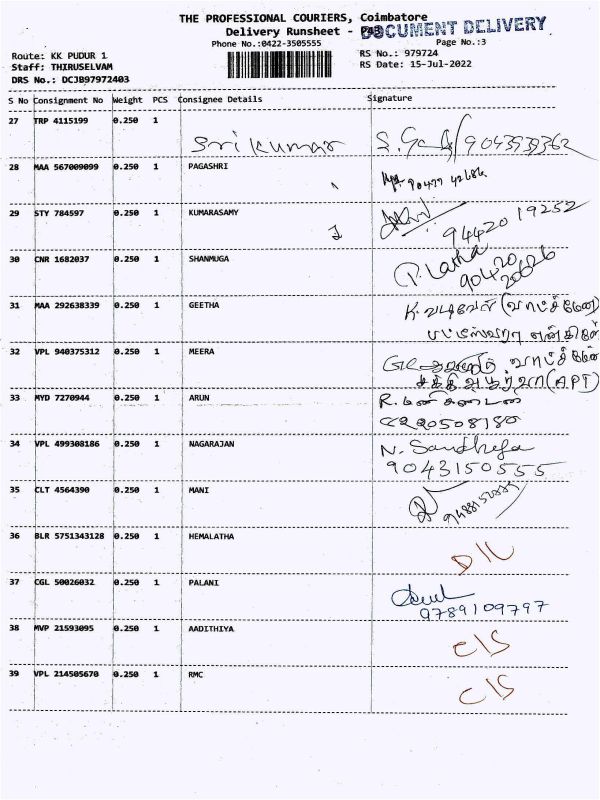 THE PROFESSIONAL COURIERS, Coimbatore
Delivery Runsheet - P43
DOCUMENT DELIVERY
Phone No.:0422-3505555
Page No.:3
Route: KK PUDUR 1
RS No.: 979724
Staff: THIRUSELVAM
RS Date: 15-Jul-2022
DRS No.: DCJB97972403
S No Consignment No Weight PCS Consignee Details Signature
27 TRP 4115199 0.250 1
Sri kumar 9043939362
28 MAA 567009099 0.250 1 PAGASHRI
90477 42686
29 STY 784597 0.250 1 KUMARASAMY
94420 19252
30 CNR 1682037 0.250 1 SHANMUGA
P. Latha
90420
20626
31 MAA 292638339 0.250 1 GEETHA
K. வடிவேல் (வாட்ச்மேன்)
32 VPL 940375312 0.250 1 MEERA
வாட்ச்மேன்
(APT)
33 MYD 7270944 0.250 1 ARUN
8220508180
34 VPL 499308186 0.250 1 NAGARAJAN
N. Sandhya
9043150555
35 CLT 4564390 0.250 1 MANI
36 BLR 5751343128 0.250 1 HEMALATHA
D/L
37 CGL 50026032 0.250 1 PALANI
9789109797
38 MVP 21593095 0.250 1 AADITHIYA
C/S
39 VPL 214505670 0.250 1 RMC
C/S